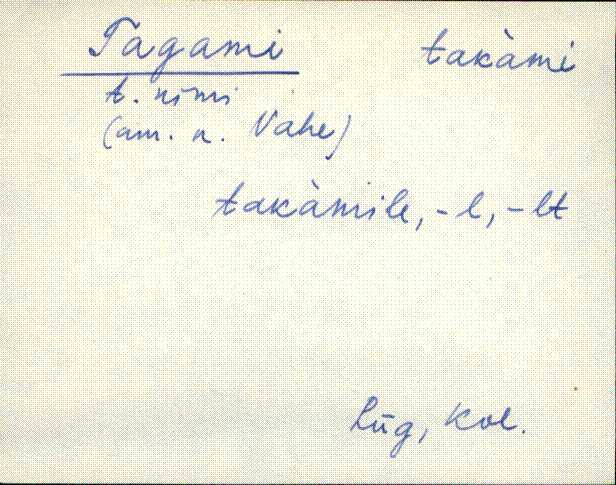 Tagami takàmi
t. nimi
(am. n. Vahe)
takàmile, -l, -lt
Lüg, Koe.